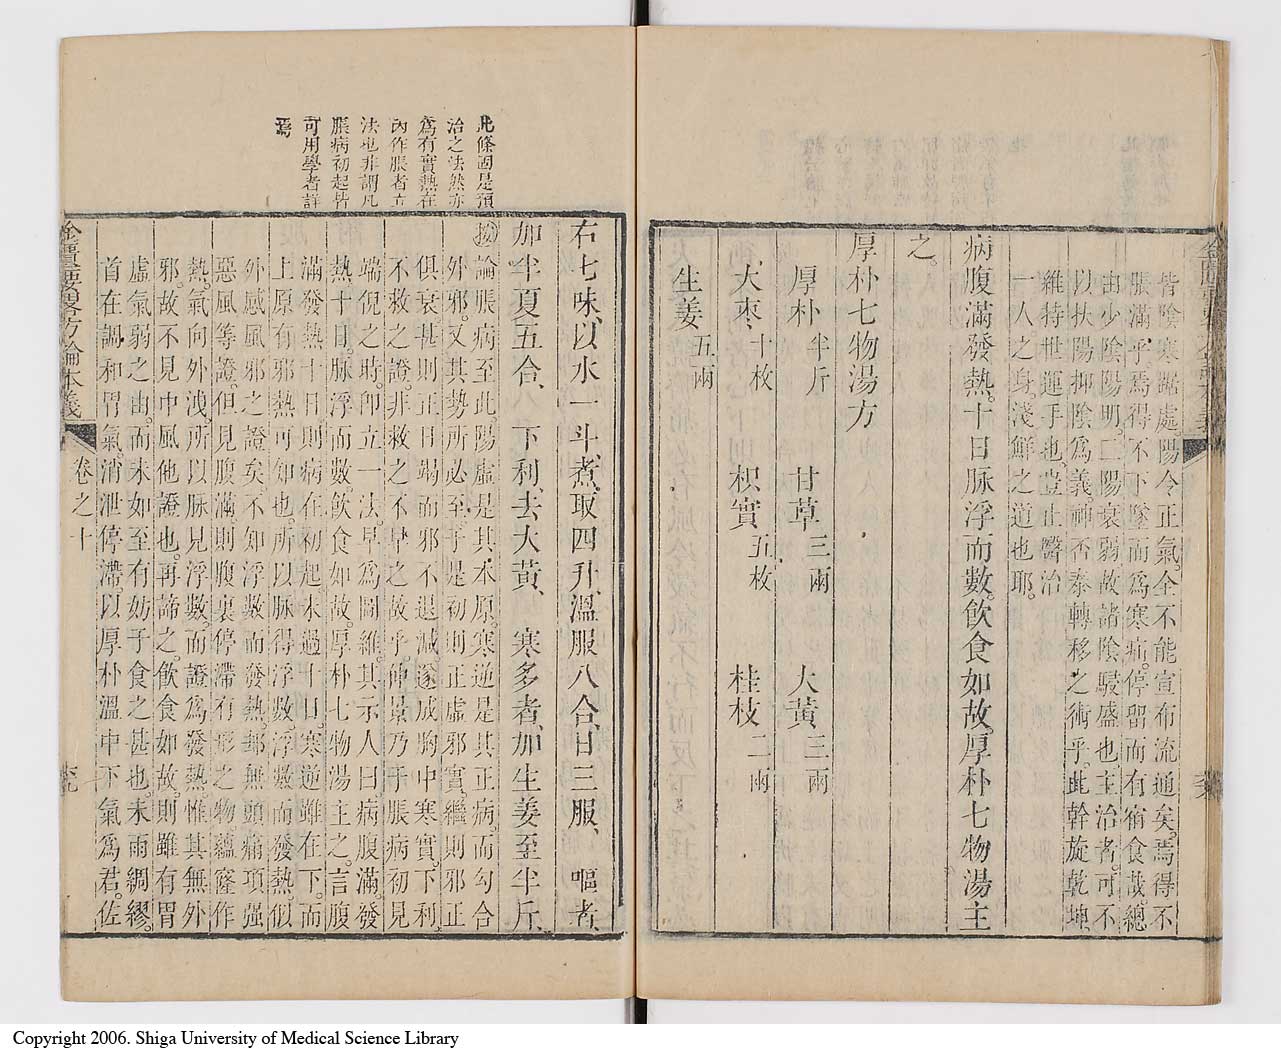 皆陰寒踞處陽令正氣全不能宣布流通矣焉得不
脹滿乎焉得不下墜而為寒疝停留而有宿食哉總
由少陰陽明二陽衰弱故諸陰駁盛也主治者可不
以扶陽抑陰為義禆否泰轉移之術乎此幹旋乾坤
維持世運手也豈止醫治
一人之身淺鮮之道也耶
病腹滿發熱十日脉浮而數飲食如故厚朴七物湯主
之
厚朴七物湯方
厚朴半斤 甘草三兩 大黃三兩
大枣十枚 枳實五枚 桂枝二兩
生姜五兩
此條固是預
治之法然亦
為有實熱在
內作脹者立
法也非謂凡
脹病初起皆
可用學者詳
焉
右七味以水一斗煮取四升溫服八合日三服 嘔者
加半夏五合 下利去大黃 寒多者加生姜至半斤
按論脹病至此陽虛是其本原寒逆是其正病而勾合
外邪又其勢所必至于是初則正虛邪實繼則邪正
俱衰甚則正日竭而邪不退減遂成胸中寒實下利
不救之證非救之不早之故乎仲景乃于脹病初見
端倪之時即立一法早為圖維其示人曰病腹滿發
熱十日脉浮而數飲食如故厚朴七物湯主之言腹
滿發熱十日則病在初起未過十日寒逆雖在下而
上原有邪熱可知也所以脉得浮數浮數而發熱似
外感風邪之證矣不知浮數而發熱却無頭痛項强
惡風等證但見腹滿則腹裏停滯有形之物蘊窿作
熱氣向外洩所以脉見浮數而證為發熱惟其無外
邪故不見中風他證也再諦之飲食如故則雖有胃
虛氣弱之由而未如至有妨于食之甚也未雨綢繆
首在調和胃氣消泄停滯以厚朴溫中下氣為君佐
金匱要畧方論本義
卷之十